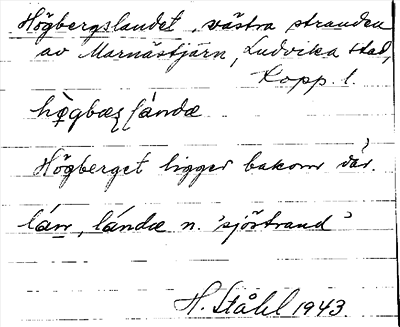 Högbergslandet, västra stranden
av Marnästjärn, Ludvika stad,
Kopp. l.
Högberget ligger bakom där.
lán, lándæ n. 'sjöstrand'
H. Ståhl 1943.